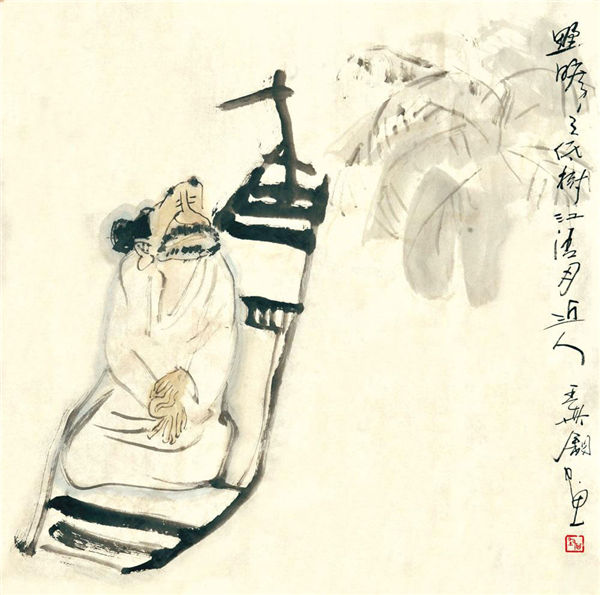 野曠天低樹江清月近人